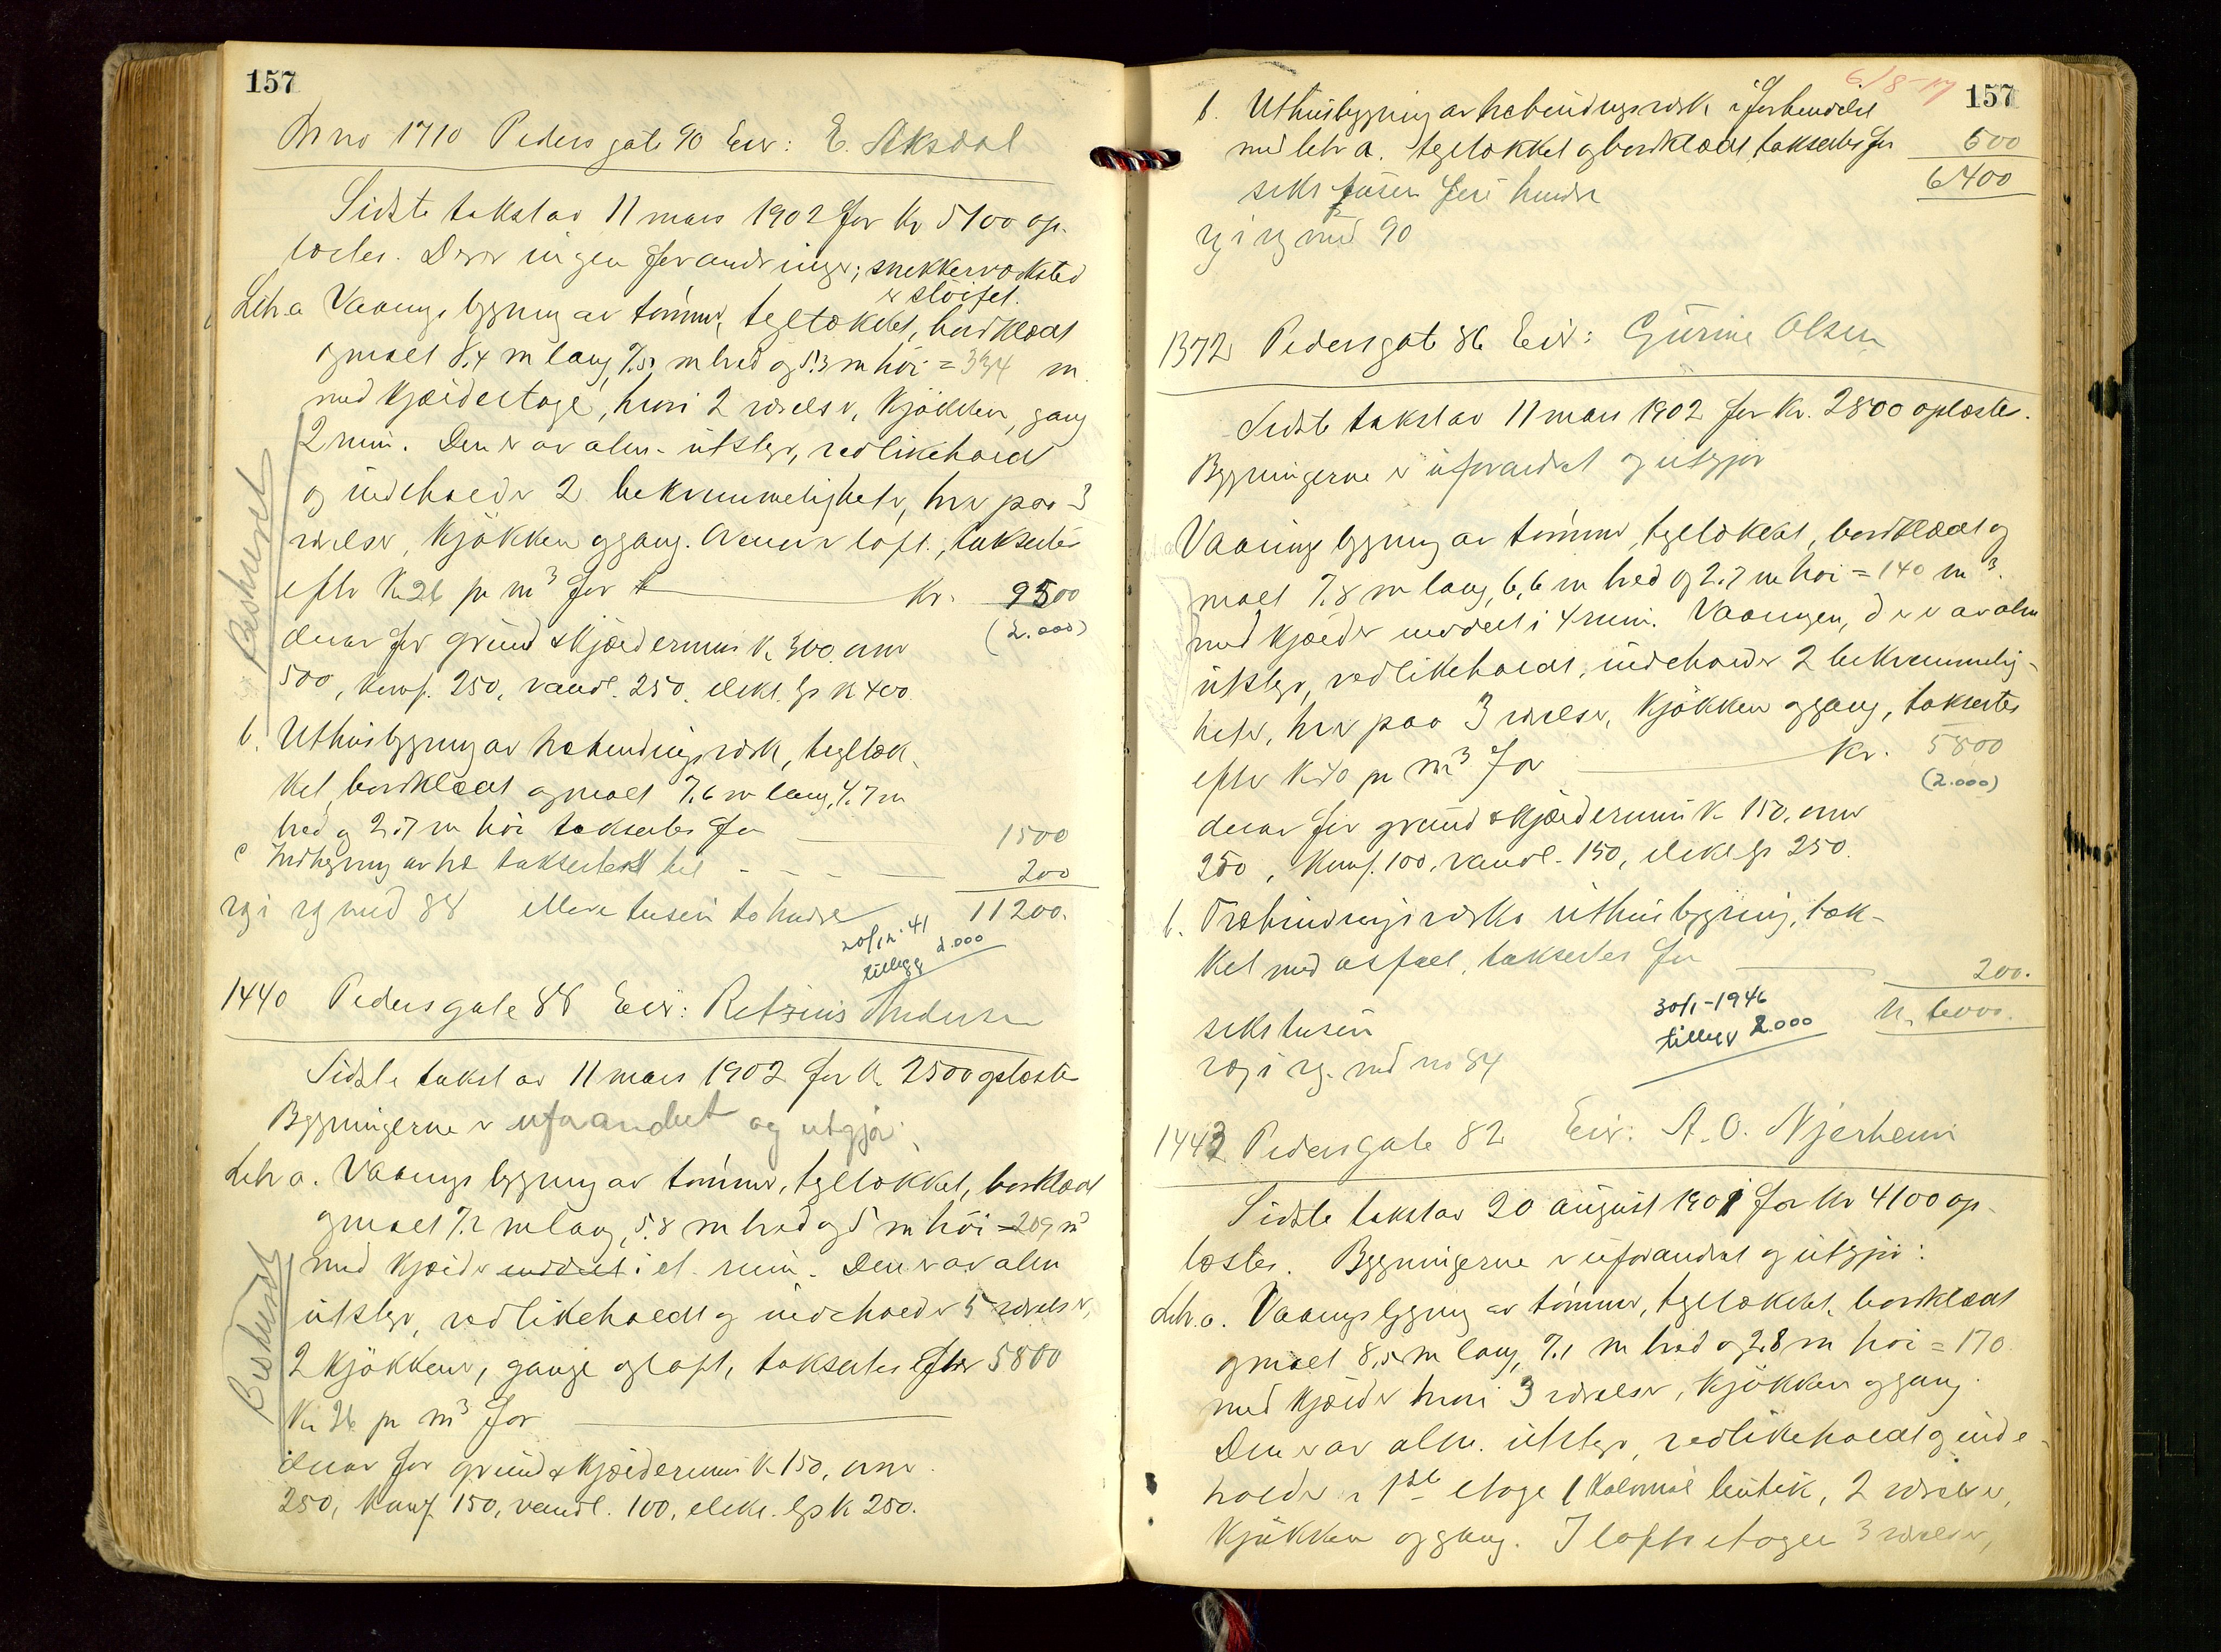 157
Mno 1710 Pedersgate 90 Eier: E. Aksdal
Sidste takst av 11 mars 1902 for Kr 5100 op-
læstes. Der er ingen forandringer; snekkerverksted
er sløifet.
Litr a Vaaningsbygning av tømmer, tegltækket, bordklædt
og malt 8.4 m lang, 7.5 m bred og 5.3 m høi = 334 m
med kjælderetage, hvori 2 værelser, kjøkken, gang
2 rum. Den er av alm. utstyr, vedlikeholdt
og indeholder 2 bekvemmeligheter, hver paa 3
værelser, kjøkken og gang. Ovenover loft, takseres
efter Kr 26 pr m³ for Kr. 9500
(2.000)
derav for grund & kjældermur Kr 300. ovner
500, komf. 250, vandl. 250. elekt. lys Kr 400.
Beskuret
b. Uthusbygning av træbindingsverk, tegltæk-
ket, bordklædt og malt 7.6 m lang, 4.7 m
bred og 2.7 m høi takseres for 1500
c Indhegning av træ takseres til - - - 200
ryg i ryg med 88 elleve tusen to hundre 11200.
20/12-41
tillegg 2.000
1440 Pedersgate 88 Eier: Retzius Andersen
Sidste takst av 11 mars 1902 for Kr. 2500 oplæstes
Bygningerne er uforandret og utgjør:
Litr a. Vaaningsbygning av tømmer, tegltækket, bordklædt
og malt 7.2 m lang, 5.8 m bred og 5 m høi = 209 m³
med kjælder inddelt i et rum. Den er av alm
utstyr, vedlikeholdt og indeholder 5 værelser,
2 kjøkkener, gange og loft, takseres efter 5800
Kr 26 pr m³ for
derav for grund & kjældermur Kr 150, ovner
250, komf. 150, vandl. 100, elekt. lys Kr 250.
Beskuret
6/8-17
157
b. Uthusbygning av træbindingsverk i forbindelse
med litr a. tegltækket og bordklædt, takseres for 600
seks tusen fire hundre 6400
ryg i ryg med 90
1372 Pedersgate 86 Eier: Gurine Olsen
Sidste takst av 11 mars 1902 for Kr. 2800 oplæstes.
Bygningerne er uforandret og utgjør
Vaaningsbygning av tømmer, tegltækket, bordklædt og
malt 7.8 m lang, 6,6 m bred og 2.7 m høi = 140 m³.
med kjælder inddelt i 4 rum. Vaaningen, der er av alm
utstyr, vedlikeholdt, indeholder 2 bekvemmelig-
heter, hver paa 3 værelser, kjøkken og gang, takseres
efter Kr 40 pr m³ for Kr. 5800
(2.000)
derav for grund & kjældermur Kr 150, ovner
250, komf. 100, vandl. 150, elekt. lys 250.
b. Træbindingsverks uthusbygning, tæk-
ket med asfalt, takseres for 200.
seks tusen Kr. 6000.
30/1-1946
tillegg 2.000
ryg i ryg. med no 84
1443 Pedersgate 82 Eier: A. O. Njerheim
Sidste takst av 20 august 1901 for Kr 4100 op-
læstes. Bygningerne er uforandret og utgjør:
Litr. a. Vaaningsbygning av tømmer, tegltækket, bordklædt
og malt 8,5 m lang, 7.1 m bred og 2.8 m høi = 170
med kjælder hvori 3 værelser, kjøkken og gang.
Den er av alm. utstyr, vedlikeholdt og inde-
holder i 1ste etage 1 kolonial butik, 2 værelser,
kjøkken og gang. I loftsetagen 3 værelser,